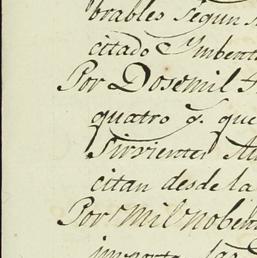 brables segun
citado Ymbent
Por Dosemil
quatro q.^ que
Sirvientes
citan desde la
Por mil nobent
importa las